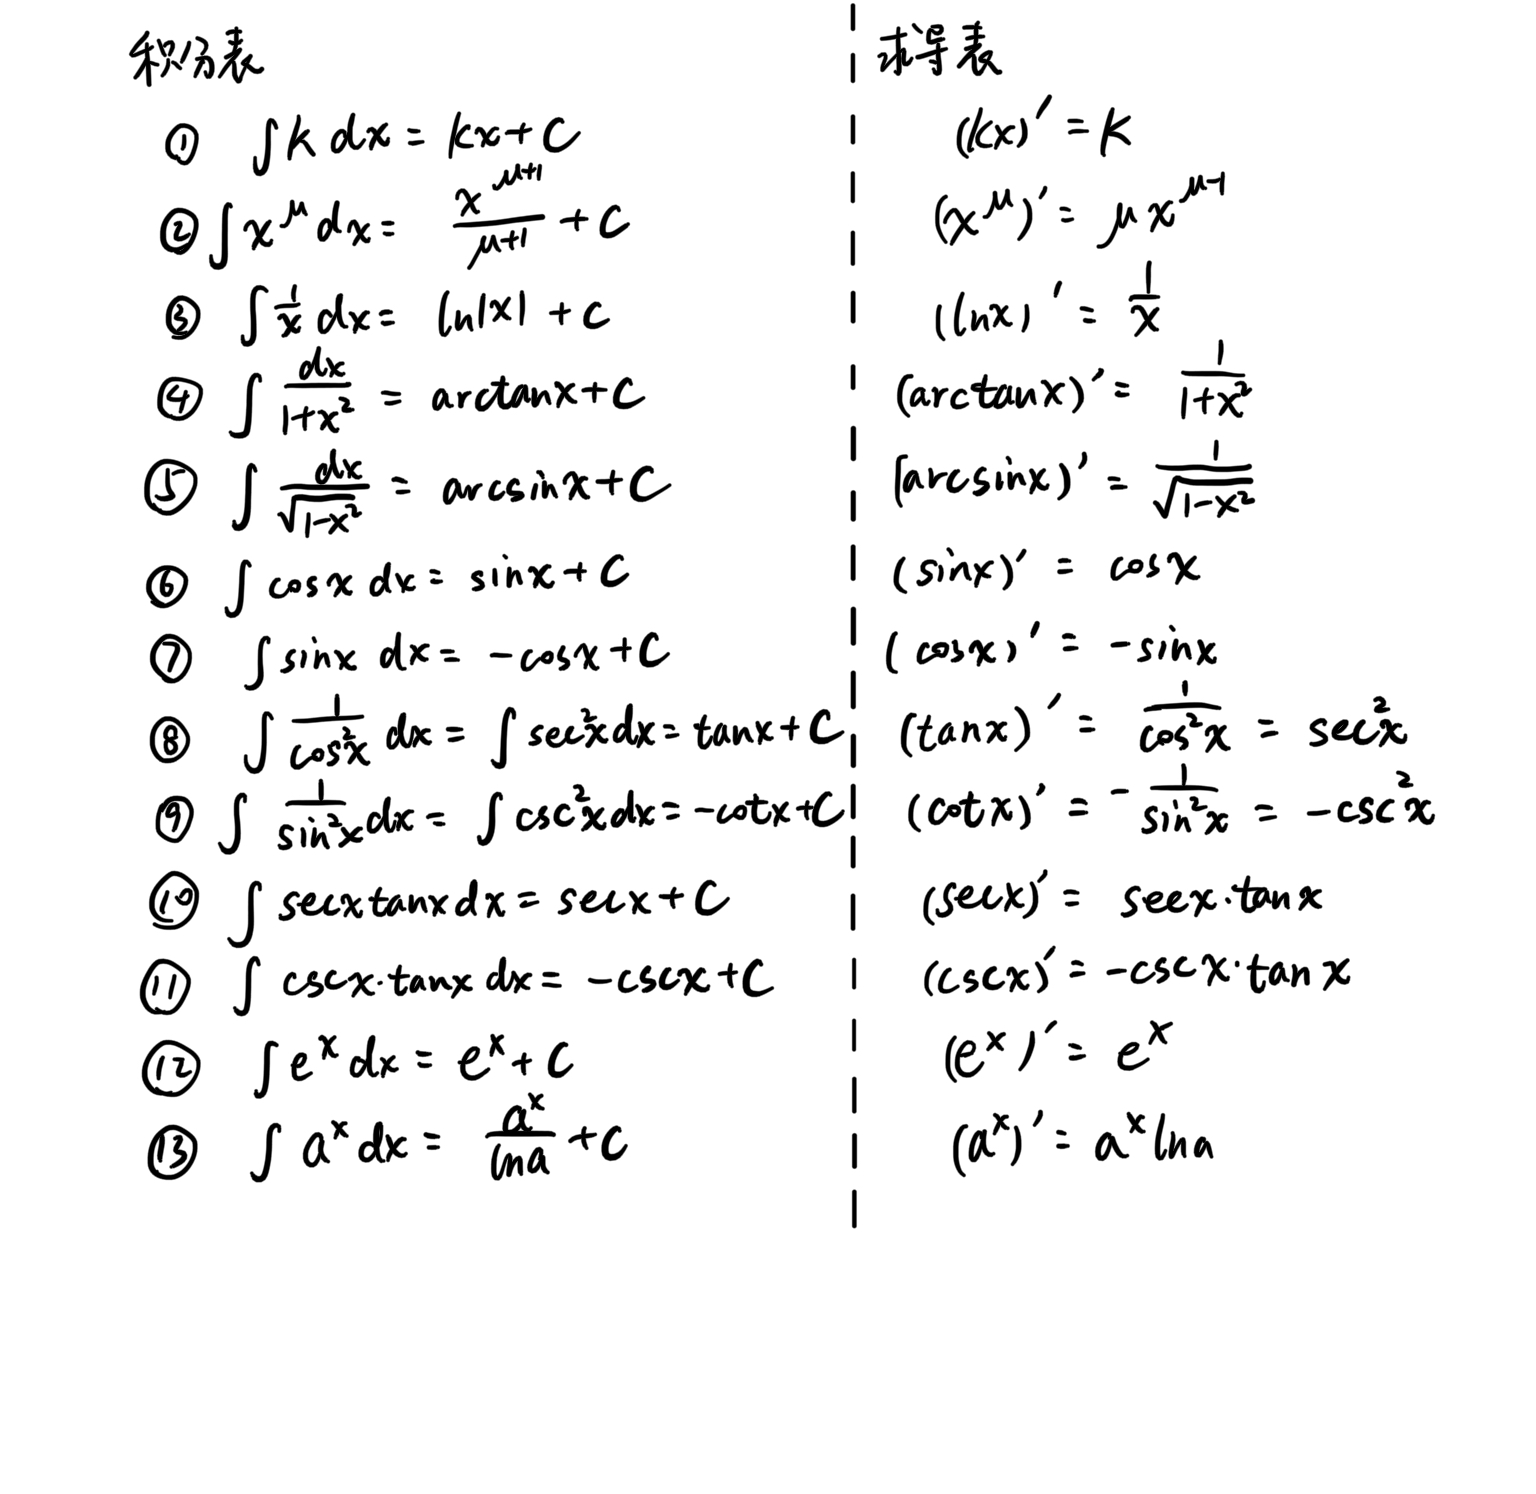 积分表
① ∫k dx = kx+C
② ∫x^μ dx = x^(μ+1)/(μ+1) + C
③ ∫1/x dx = ln|x| + C
④ ∫dx/(1+x²) = arctanx+C
⑤ ∫dx/√(1-x²) = arcsinx+C
⑥ ∫cosx dx = sinx+C
⑦ ∫sinx dx = -cosx+C
⑧ ∫1/cos²x dx = ∫sec²xdx = tanx+C
⑨ ∫1/sin²x dx = ∫csc²xdx = -cotx+C
⑩ ∫secxtanxdx = secx+C
⑪ ∫cscx·tanx dx = -cscx+C
⑫ ∫e^x dx = e^x+C
⑬ ∫a^x dx = a^x/lna +C
求导表
(kx)' = k
(x^μ)' = μx^(μ-1)
(lnx)' = 1/x
(arctanx)' = 1/(1+x²)
(arcsinx)' = 1/√(1-x²)
(sinx)' = cosx
(cosx)' = -sinx
(tanx)' = 1/cos²x = sec²x
(cotx)' = -1/sin²x = -csc²x
(secx)' = secx·tanx
(cscx)' = -cscx·tanx
(e^x)' = e^x
(a^x)' = a^x lna